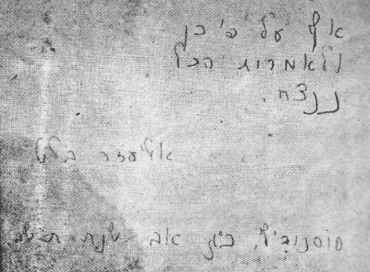 אף על פי כן
ולאמרות הכל
ננצח.
אליעזר
סוסנוביץ, אב שנת